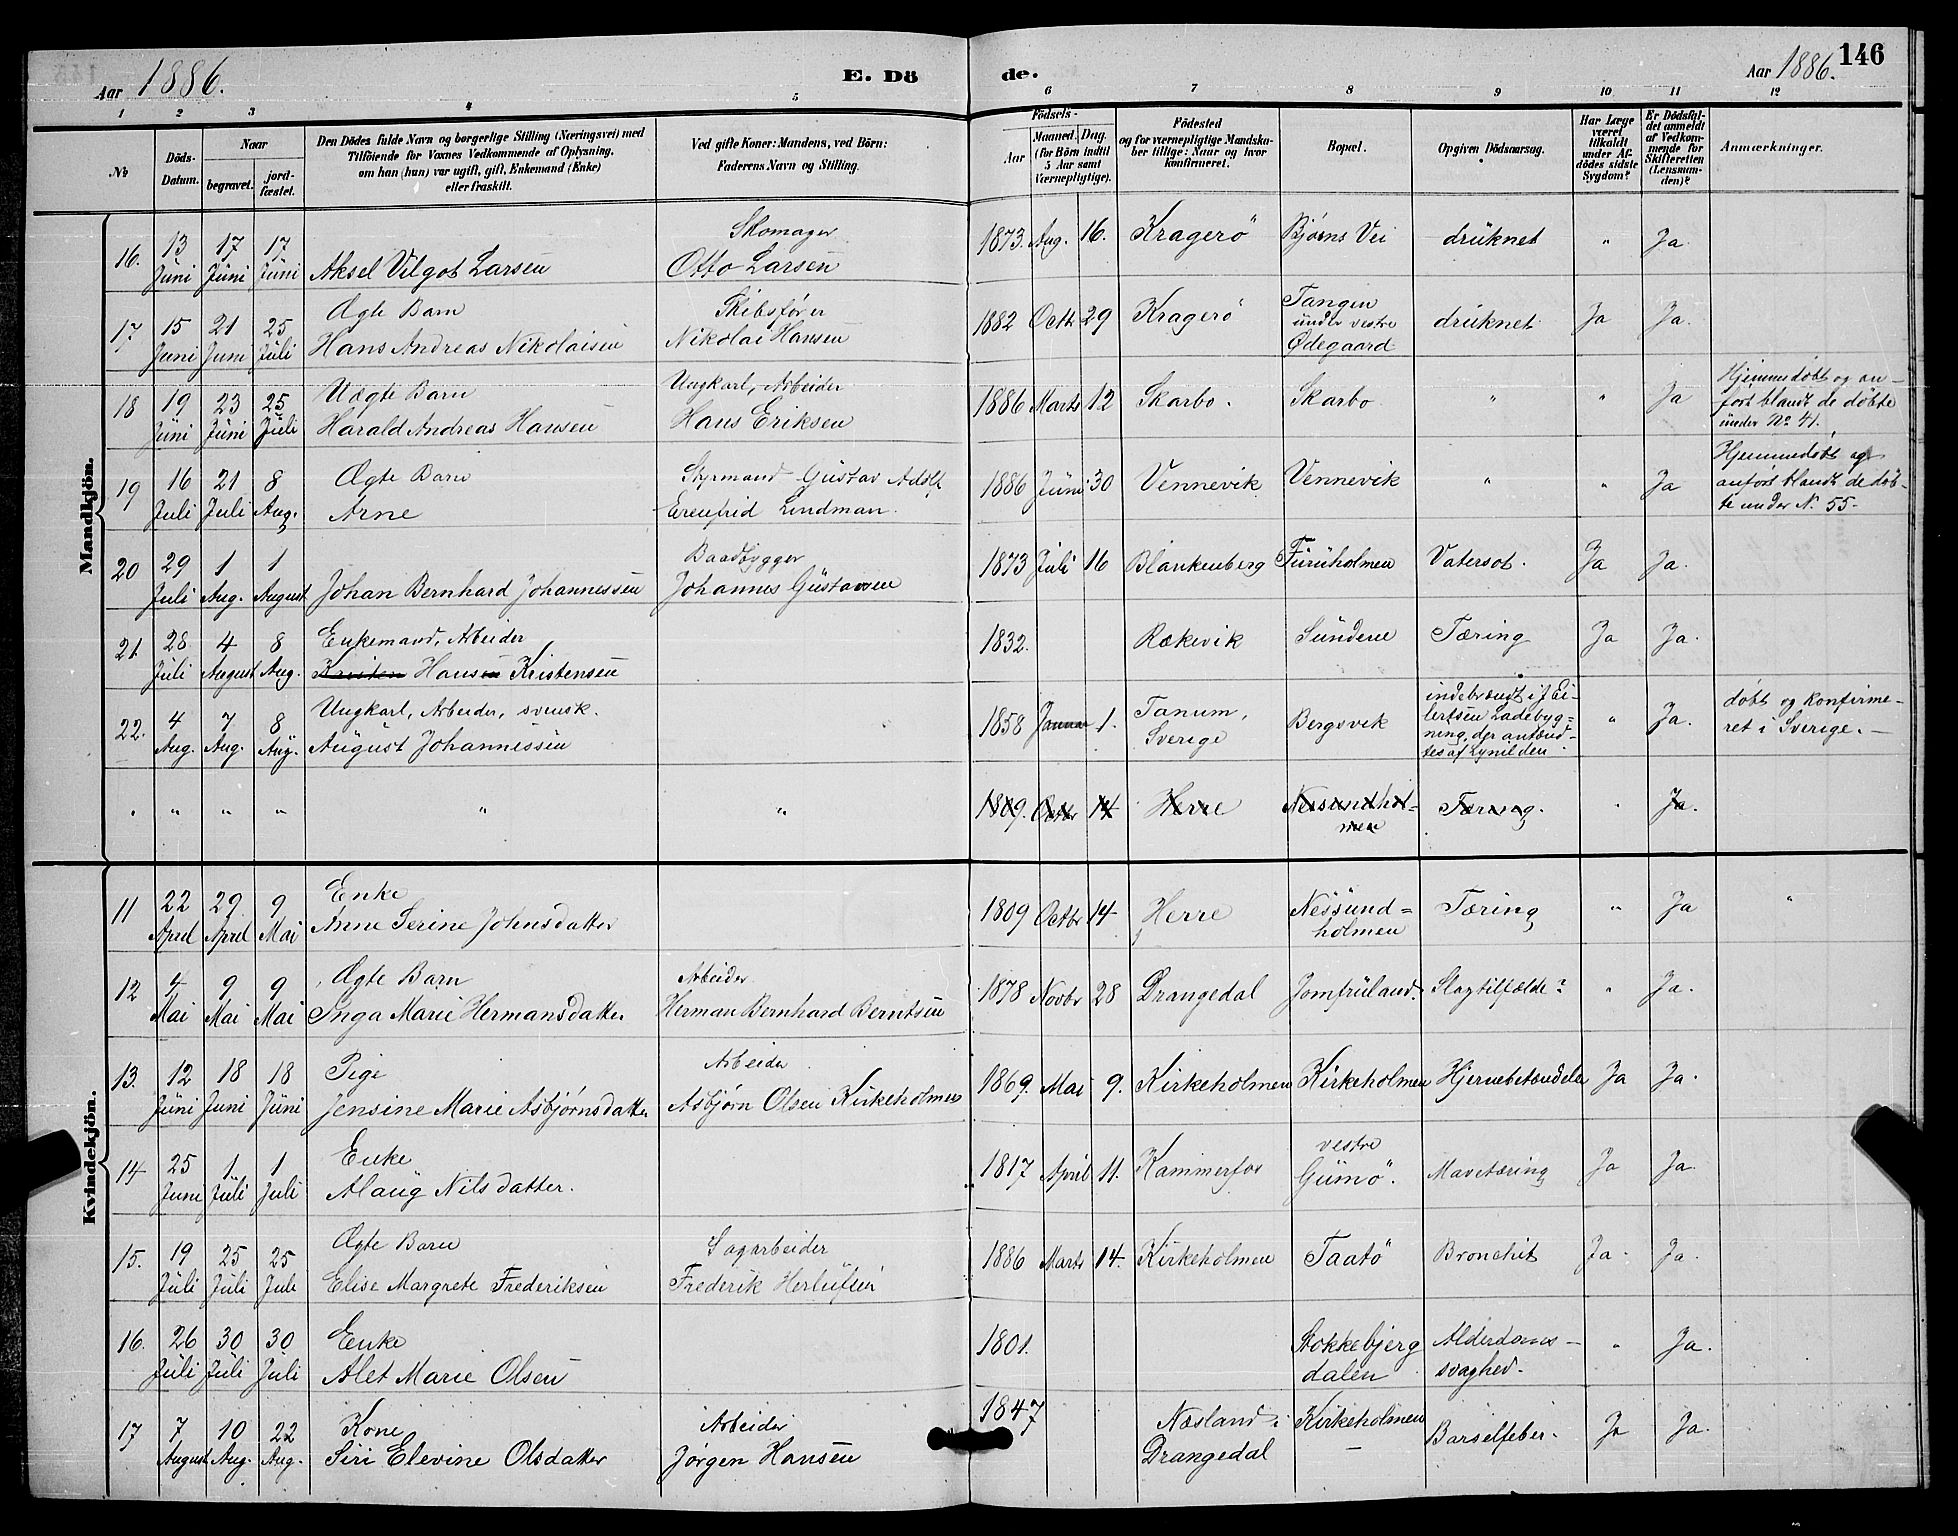 Aar 1886. E. Dö de. Aar 1886. 146
1 2 3 4 5 6 7 8 9 10 11 12
№ Döds-Datum. Naar begravet. jord-fæstet. Den Dödes fulde Navn og borgerlige Stilling (Næringsvei) med Tilföiende for Voxnes Vedkommende af Oplysning, om han (hun) var ugift, gift, Enkemand (Enke) eller fraskilt. Ved gifte Koner: Mandens, ved Börn: Faderens Navn og Stilling. Födsels- Aar Maaned. Dag. (for Börn indtil 5 Aar samt Værnepligtige). Födested og for værnepligtige Mandskaber tillige: Naar og hvor konfirmeret. Bopæl. Opgiven Dödsaarsag. Har Læge været tilkaldt under Afdödes sidste Sygdom? Er Dödsfaldet anmeldt af Vedkommende for Skifteretten (Lensmanden)? Anmærkninger.
Mandkjön.
16. 13 Juni 17 Juni 17 Juni Aksel Vilgot Larsen Skomager Otto Larsen 1873. Aug. 16. Kragerö Bjørns Vei druknet " Ja.
17 15 Juni 21 Juni 25 Juli Ægte Barn Hans Andreas Nikolaisen Skibsfører Nikolai Hansen 1882 Octbr 29 Kragerö Tangen under vestre Ødegaard druknet. Ja Ja.
18 19 Juni 23 Juni 25 Juli Uægte Barn Harald Andreas Hansen Ungkarl, Arbeider Hans Eriksen 1886 Marts 12 Skarbo. Skarbo. " " Ja Hjemmedøbt og anført blandt de døbte under No 41.
19 16 Juli 21 Juli 8 Aug. Ægte Barn Arne Styrmand Gustav Adolf Erenfrid Lindman. 1886 Juni 30 Vennevik Vennevik " " Ja Hjemmedøbt og anført blandt de døbte under N. 55.
20 29 Juli 1 Aug. 1 August Johan Bernhard Johannessen Baadbygger Johannes Gustavsen 1873 Juli 16 Blankenberg Furuholmen Vatersot. Ja Ja.
21 28 Juli 4 August 8 Aug. Enkemand, Arbeider Kristen Hansen Kristensen 1832. Rækevik Sundene Tæring Ja Ja.
22. 4 Aug. 7 Aug. 8 Aug. Ungkarl, Arbeider, svensk. August Johannessen 1858 Januar 1. Tanum, Sverige Bergsvik indebrændt i J. Eilertsen Ladebygning, der antændtes af Lynilden. " Ja. døbt og konfirmeret i Sverige.
" " " " " " 1809. Octbr 14 Herre Nesundholmen Tæring. " Ja.
Kvindekjön.
11 22 April 29 April 9 Mai Enke Anne Serine Johnsdatter 1809 Octbr 14 Herre Nessundholmen Tæring " Ja "
12 4 Mai 9 Mai 9 Mai Ægte Barn Inga Marie Hermansdatter Arbeider Herman Bernhard Berntsen 1878 Novbr 28 Drangedal Jomfruland. Slagtilfælde? " Ja.
13. 12 Juni 18 Juni 18 Juni Pige Jensine Marie Asbjørnsdatter Arbeider Asbjørn Olsen Kirkeholmen 1869. Mai 9. Kirkeholmen Kirkeholmen Hjernebetændelse Ja Ja.
14 25 Juni 1 Juli 1 Juli Enke Alaug Nilsdatter. 1817 April 11. Kammerfos vestre Gumö. Mavetæring Ja Ja.
15. 19 Juli 25 Juli 25 Juli Ægte Barn Elise Margrete Frederiksen Sagarbeider Frederik 1886 Marts 14. Kirkeholmen Taatö Bronchit Ja. Ja.
16. 26 Juli 30 Juli 30 Juli Enke Alet Marie Olsen 1801. Stokkebjergdalen Alderdomssvaghed. " Ja.
17 7 August 10 Aug. 22 Aug. Kone Siri Elevine Olsdatter Arbeider Jørgen Hansen 1847 Næsland i Drangedal Kirkeholmen Barselfeber. Ja Ja.